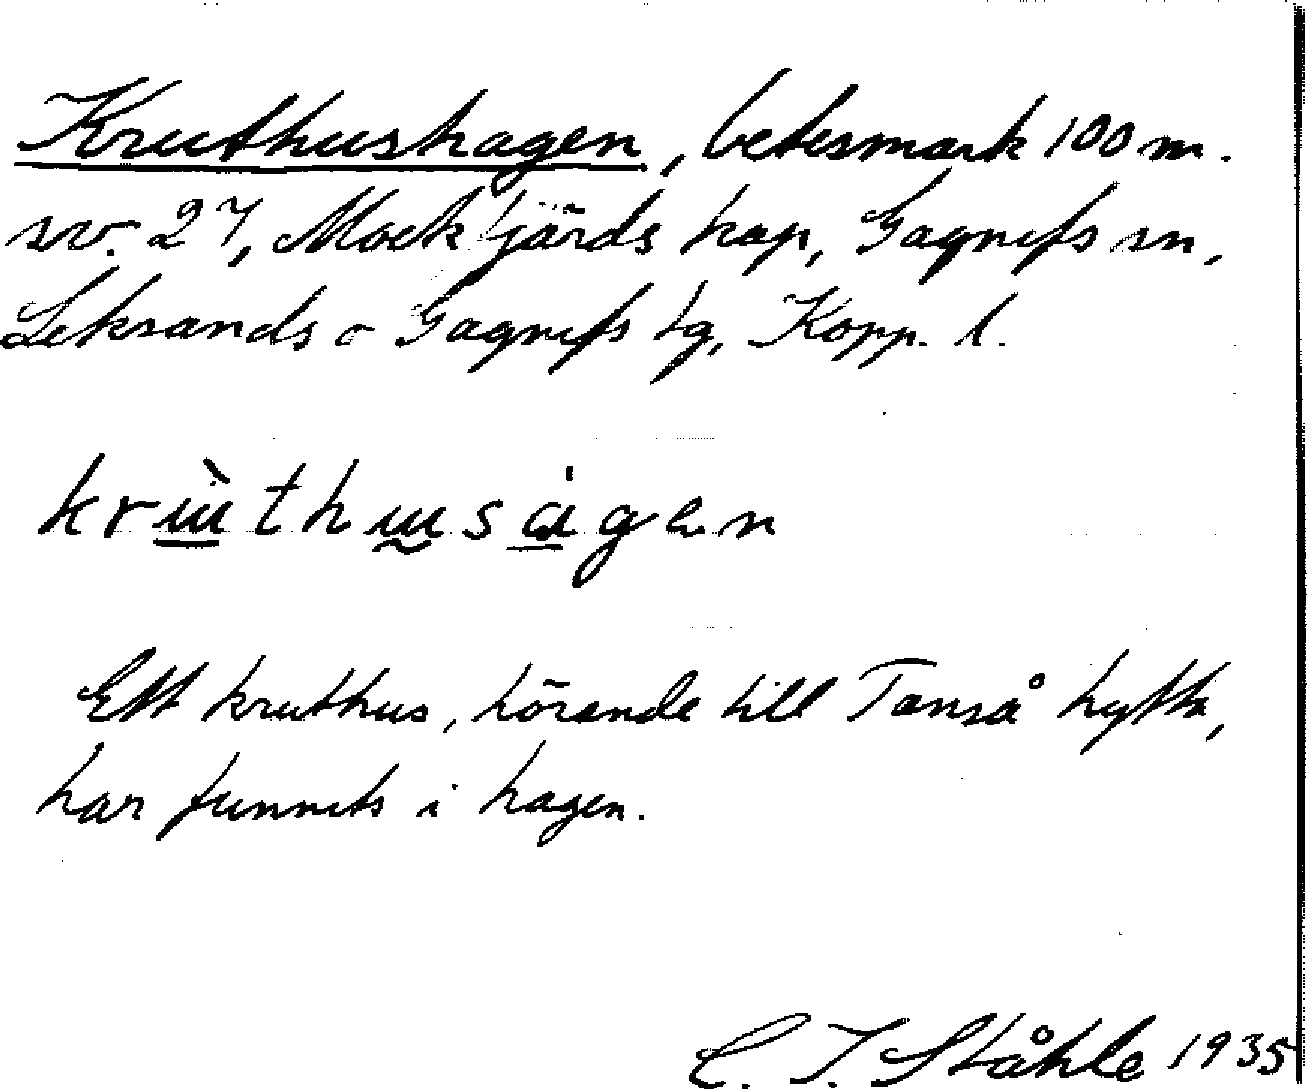 Kruthushagen, betesmark 100 m.
sv. 27, Mockfjärds kap, Gagnefs sn,
Leksands o Gagnefs tg, Kopp. l.
krɯ̀thɯságen
Ett kruthus, hörande till Tanså hytta,
har funnits i hagen.
C. I. Ståhle 1935